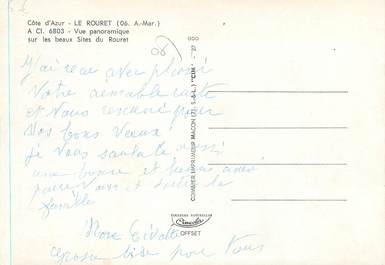 Côte d'Azur - LE ROURET (06. A.-Mar.)
A CI. 6803 - Vue panoramique
sur les beaux Sites du Rouret
06
J'ai reçu avec plaisir
Votre aimable carte
et Vous remercie pour
Vos bons Vœux
Je Vous souhaite aussi
une bonne et heureuse année
pour Vous et toute la
famille
Grosse bise pour Vous
COMBIER IMPRIMEUR MACON (T. S.-&-L.) "CIM"
COULEURS NATURELLES
Cimcolor
OFFSET